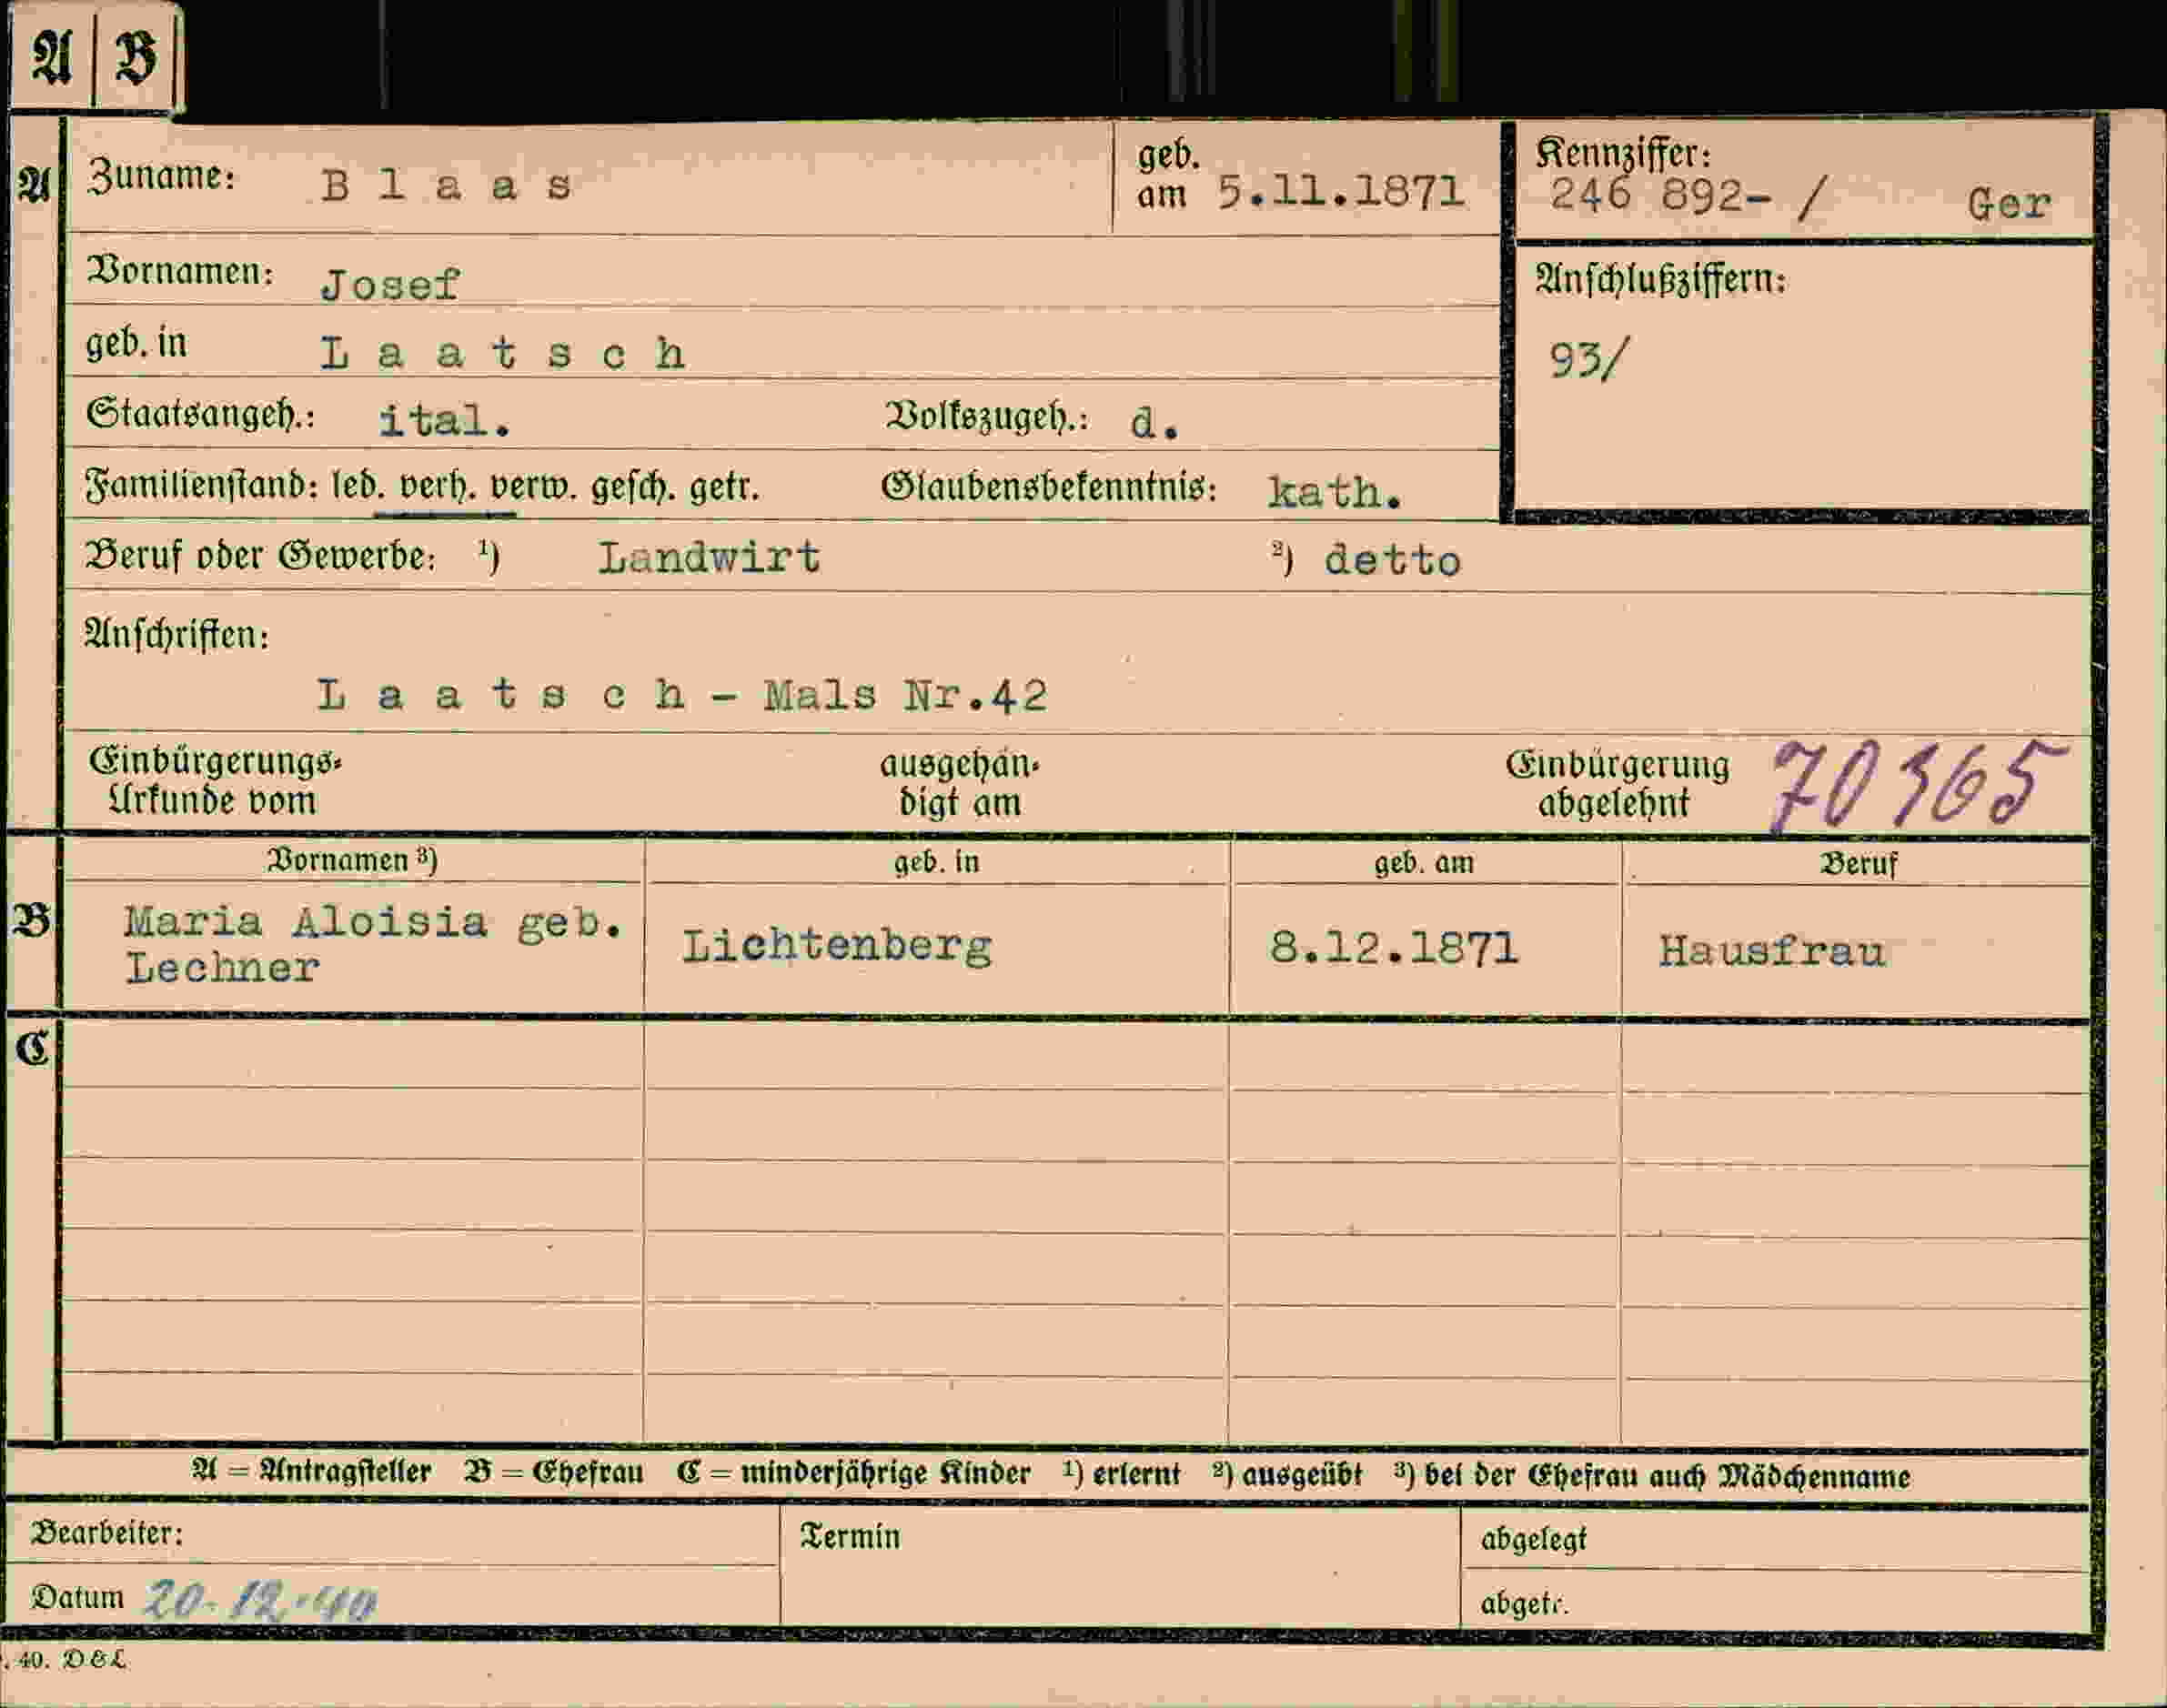 A B
A Zuname: B l a a s geb. am 5.11.1871
Kennziffer: 246 892- / Ger
Vornamen: Josef
Anschlußziffern:
geb. in L a a t s c h
93/
Staatsangeh.: ital. Volkszugeh.: d.
Familienstand: led. verh. verw. gesch. getr. Glaubensbekenntnis: kath.
Beruf oder Gewerbe: ¹) Landwirt ²) detto
Anschriften:
L a a t s c h - Mals Nr.42
Einbürgerungs- ausgehän- Einbürgerung 70365
Urkunde vom digt am abgelehnt
Vornamen ³) geb. in geb. am Beruf
B Maria Aloisia geb. Lichtenberg 8.12.1871 Hausfrau
Lechner
C
A = Antragsteller B = Ehefrau C = minderjährige Kinder ¹) erlernt ²) ausgeübt ³) bei der Ehefrau auch Mädchenname
Bearbeiter: Termin abgelegt
Datum 20.12.40 abgetr.
. 40. D & L